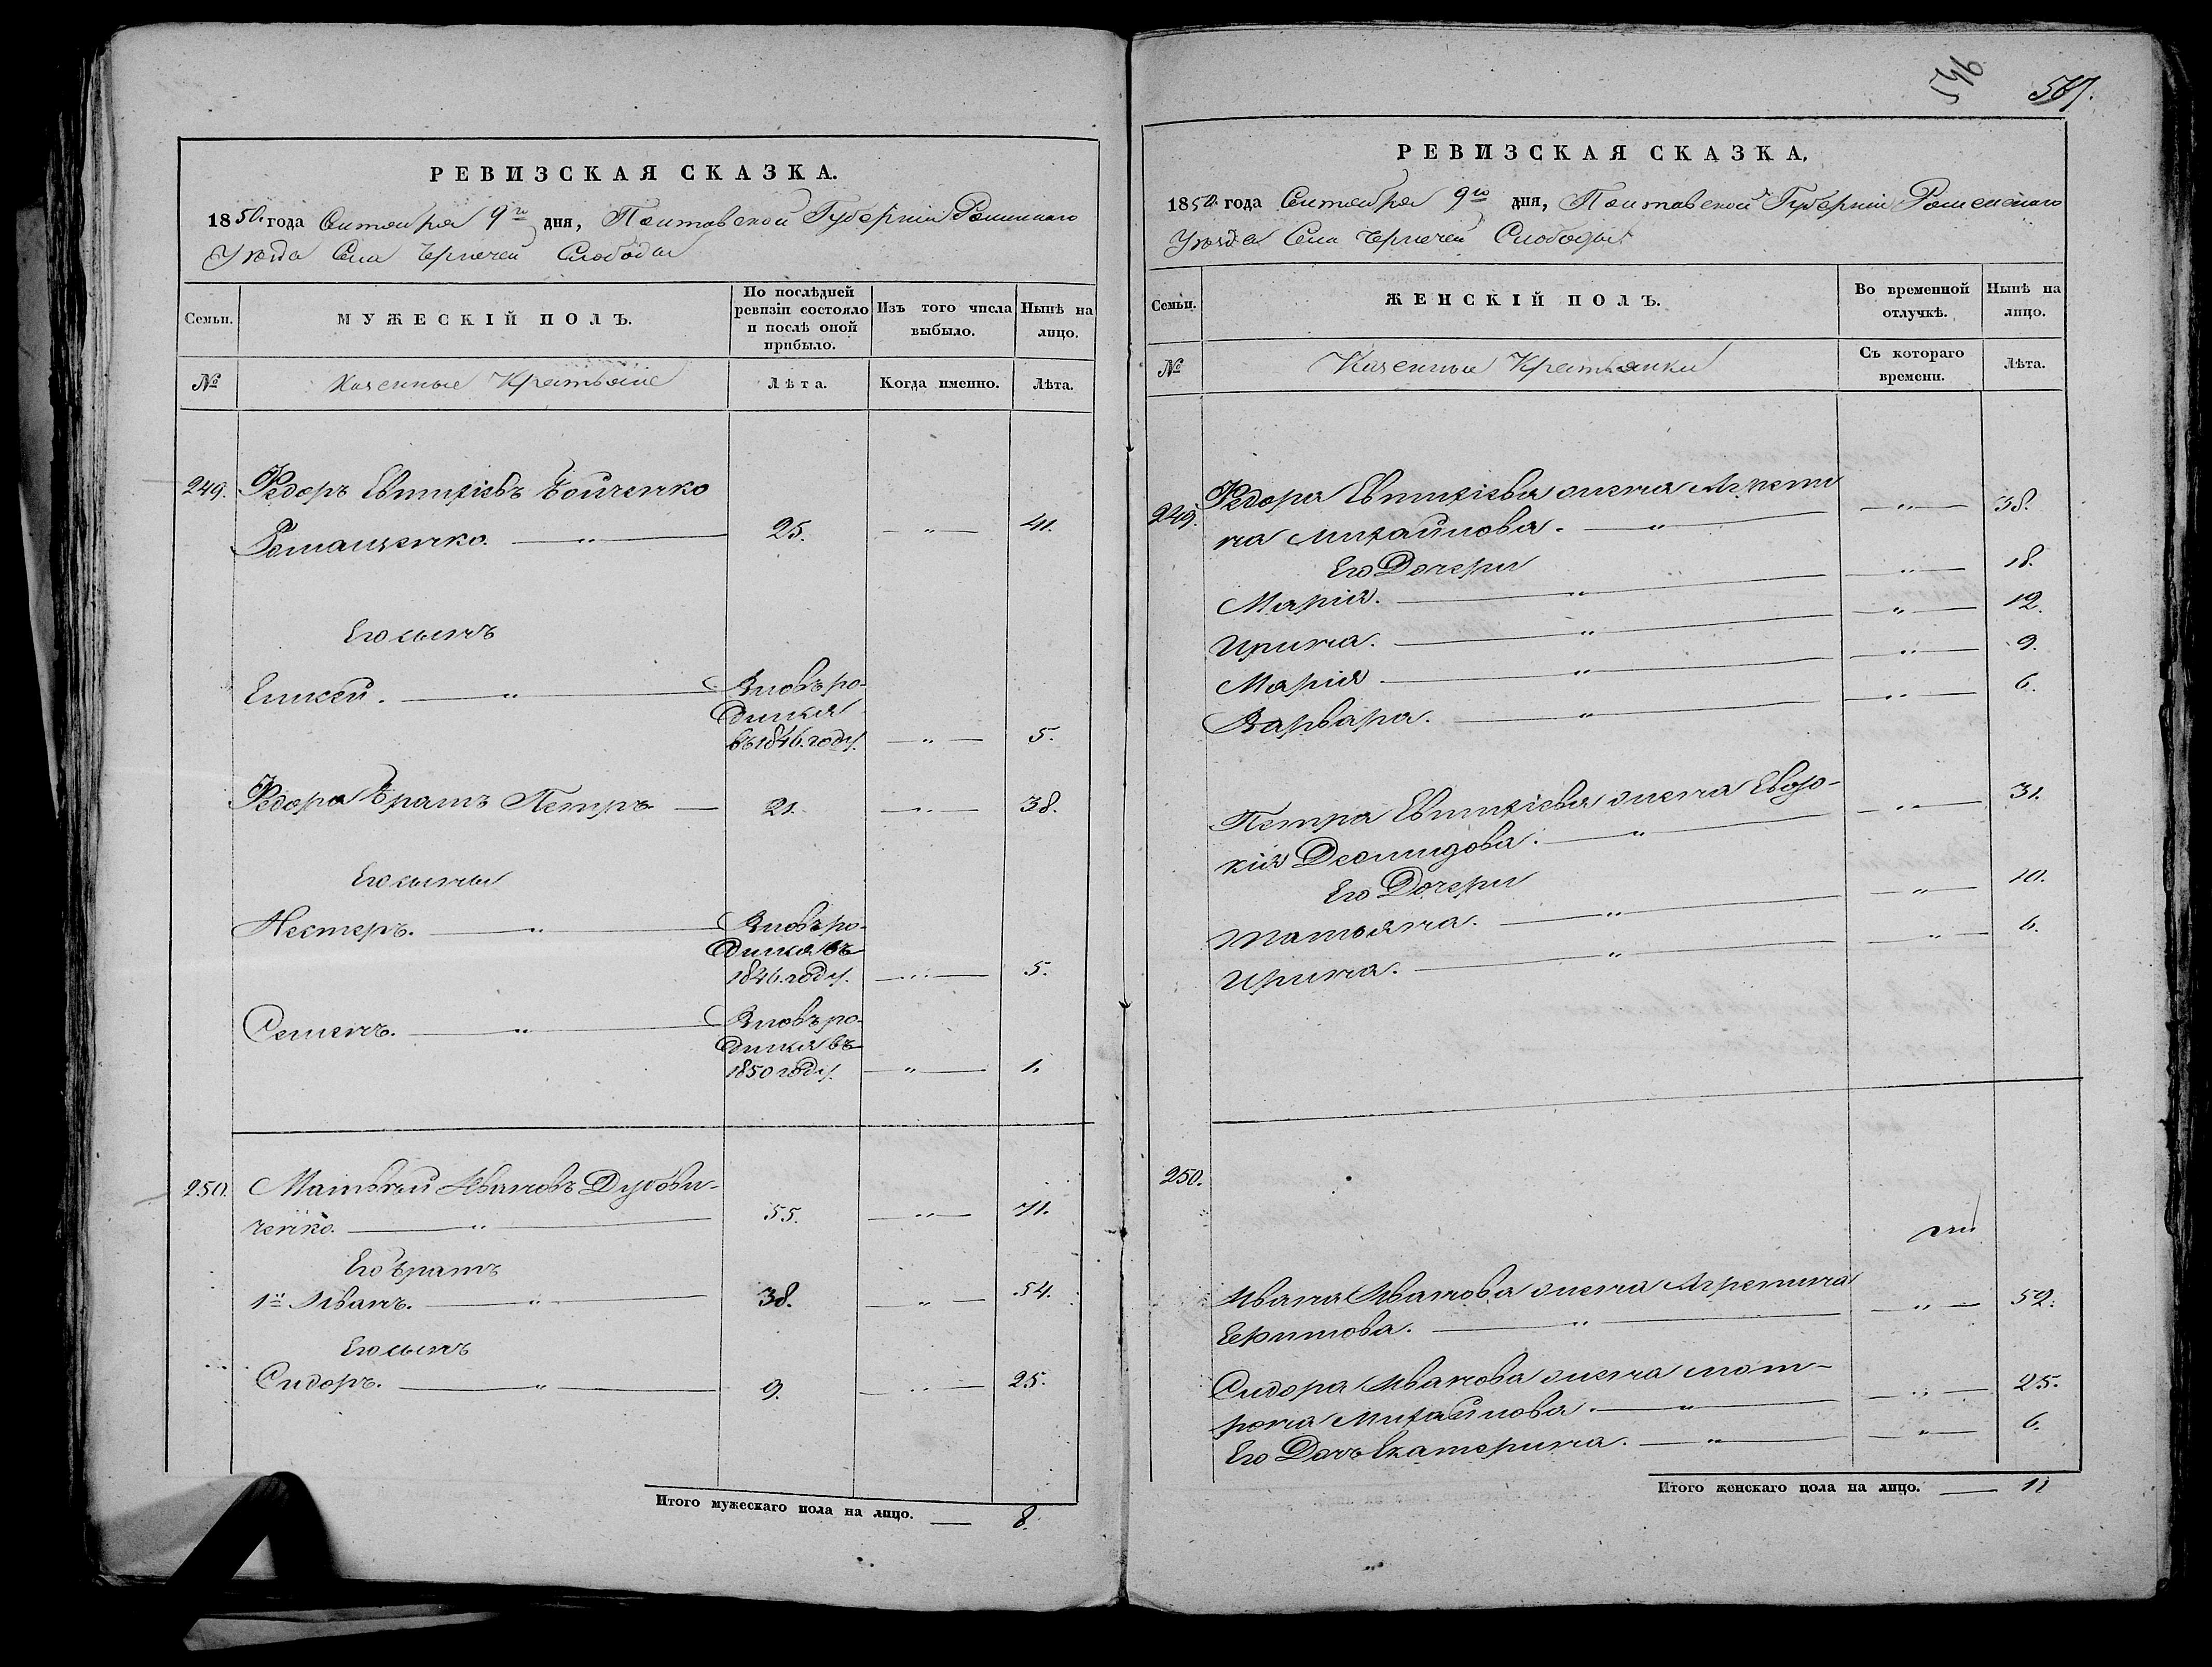 РЕВИЗСКАЯ СКАЗКА.
1850 года Сентября 9го дня, Полтавской Губерніи Роменскаго
Уѣзда Села Черпечей Слободы
Семьи.
МУЖЕСКІЙ ПОЛЪ.
По послѣдней
ревизіи состояло
и послѣ оной
прибыло.
Изъ того числа
выбыло.
Нынѣ на
лицо.
№
Казенные Крестьяне
Лѣта.
Когда именно.
Лѣта.
249. Федоръ Евтихіевъ Бойченко
Ромащенко. — " — 25. — " — 41.
Его сынъ
Елисей. — " — Вновь ро-
дился
въ 1846. году. — " — 5.
Федора братъ Петръ — 21. — " — 38.
Его сыны
Нестеръ. — " — Вновь ро-
дился въ
1846. году. — " — 5.
Семенъ. — " — Вновь ро-
дился въ
1850 году. — " — 1.
250. Матвѣй Ивановъ Дубови-
ченко. — " — 55. — " — 71.
Его братъ
1й Иванъ. — " — 38. — " — 54.
Его сынъ
Сидоръ. — " — 9. — " — 25.
Итого мужескаго пола на лицо. — 8.
546
547.
РЕВИЗСКАЯ СКАЗКА,
1850 года Сентября 9го дня, Полтавской Губерніи Роменскаго
Уѣзда Села Черпечей Слободы
Семьи.
ЖЕНСКІЙ ПОЛЪ.
Во временной
отлучкѣ.
Нынѣ на
лицо.
№
Казенные Крестьянки
Съ котораго
времени.
Лѣта.
249. Федора Евтихіева жена Агрепи
на Михайлова. — " — " — 38.
Его Дочери
Марія. — " — " — 18.
Ирина. — " — " — 12.
Марія — " — " — 9.
Варвара. — " — " — 6.
Петра Евтихіева жена Евдо-
кія Деомидова. — " — " — 31.
Его Дочери
Татьяна. — " — " — 10.
Ирина. — " — " — 6.
250.
Ивана Иванова жена Агрепина
Ефимова. — " — " — 52.
Сидора Иванова жена Мот-
рона Михайлова. — " — " — 25.
Его Дочь Екатерина. — " — " — 6.
Итого женскаго пола на лицо. — 11